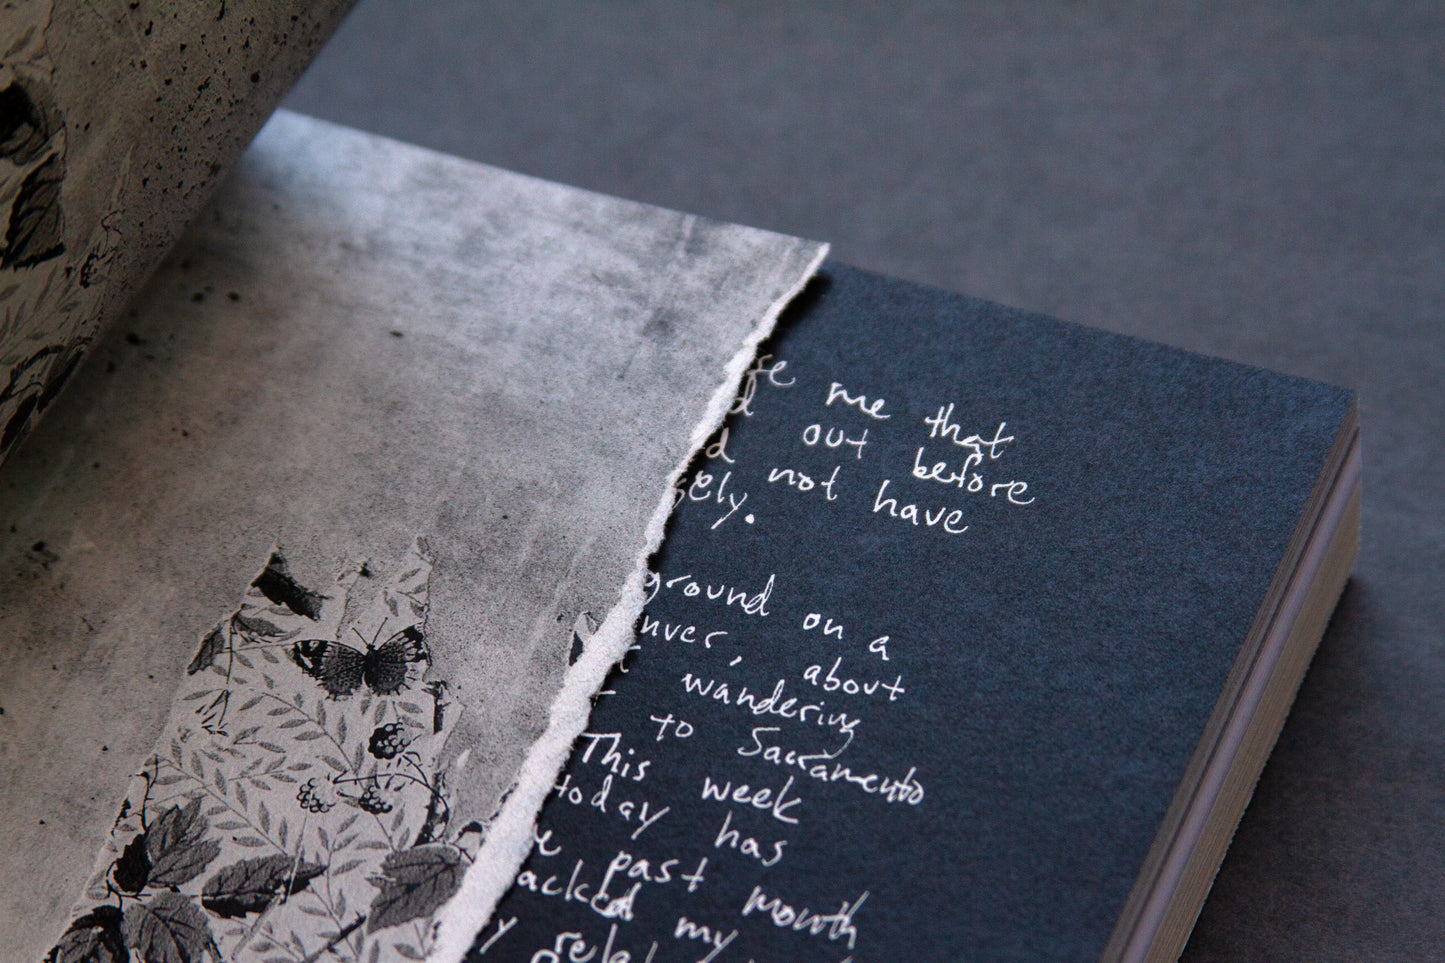 se me that
d out before
d not have
sely.
ground on a
nver, about
t wandering
- to Sacramento
This week
today has
e past month
acked my
y rela